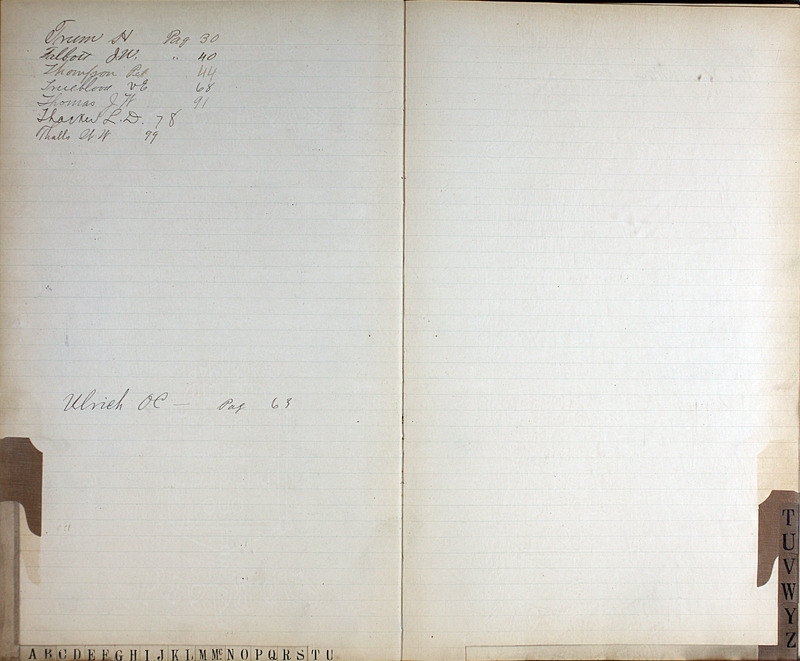 Trum H Pag 30
Talbott J.W. " 40
Thompson Pet 44
Trueblood VE 68
Thomas J W 91
Thacker L.D. 78
Thalls W 99
Ulrich OC — Pag 63
A B C D E F G H I J K L M Mc N O P Q R S T U
T
U
V
W
Y
Z